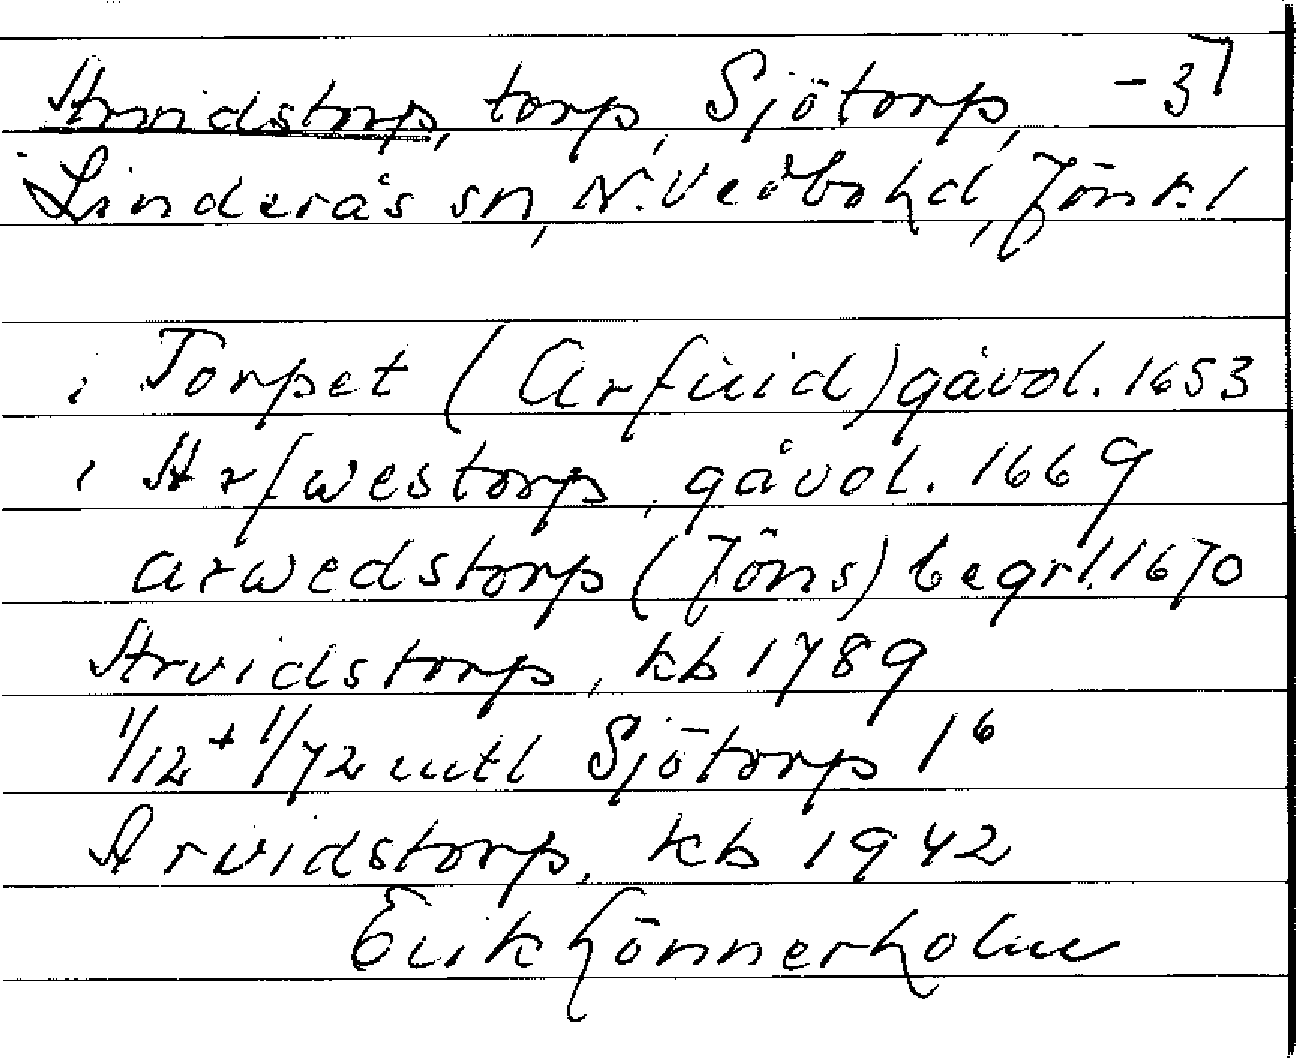 Arvidstorp, torp, Sjötorp, -37
Linderås sn, N. Vedbo hd, Jönk. l
i Torpet (Arfuid) gåvol. 1653
i Arfwestorp, gåvol. 1669
Arwedstorp (Jöns) begrl. 1670
Arvidstorp, kb 1789
1/12 + 1/72 mtl Sjötorp 1⁶
Arvidstorp, kb 1942
Erik Lönnerholm